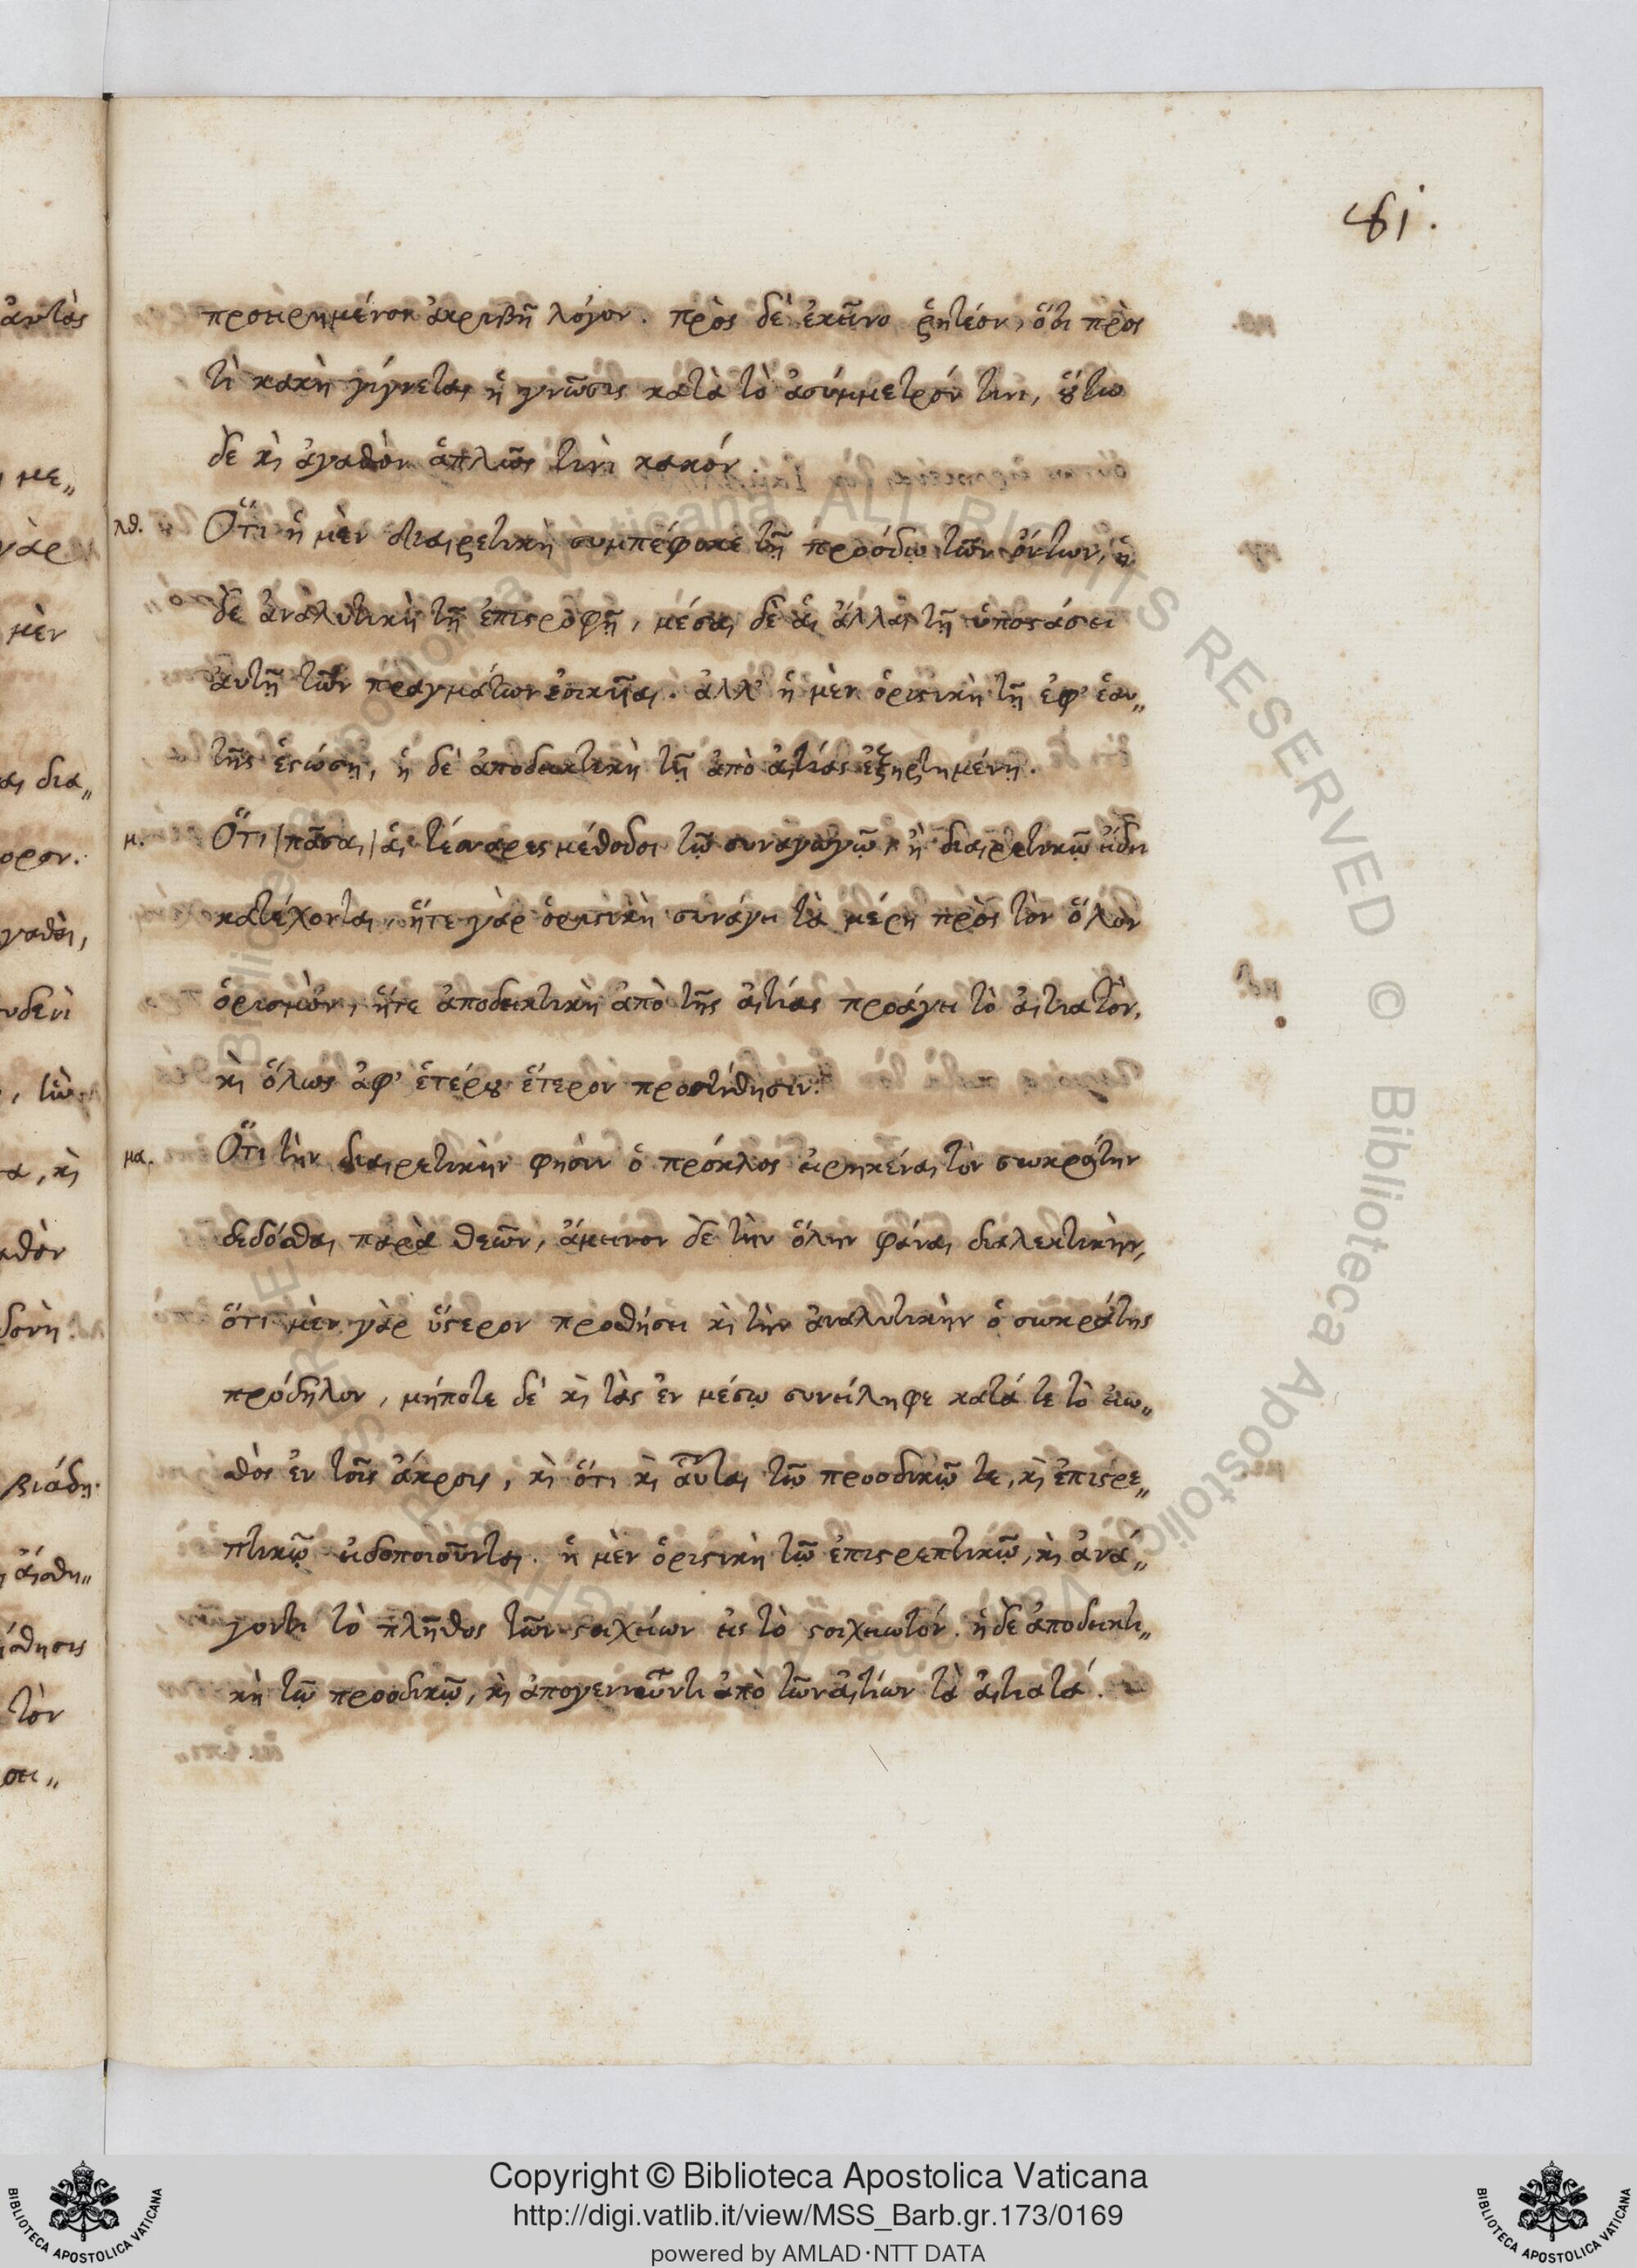 81.
προειρημένον ἀκριβῆ λόγον. πρὸς δὲ ἐκεῖνο ῥητέον, ὅτι πρὸς
τὶ κακὴ γίγνεται ἡ γνῶσις κατὰ τὸ ἀσύμμετρόν τινι, οὕτω
δὲ κὶ ἀγαθὸν ἁπλῶς τινὶ κακόν.
λθ. Ὅτι ἡ μὲν διαιρετικὴ συμπέφυκε τῇ προόδῳ τῶν ὄντων, ἡ
δὲ ἀναλυτικὴ τῇ ἐπιστροφῇ, μέσαι δὲ αἱ ἄλλαι τῇ ὑποστάσει
αὐτῇ τῶν πραγμάτων ἐοικῆαι. ἀλλ' ἡ μὲν ὁριστικὴ τῇ ἐφ' ἑαυ„
τῆς ἑστώσῃ, ἡ δὲ ἀποδεικτικὴ τῇ ἀπὸ αἰτίας ἐξηρτημένῃ.
μ. Ὅτι |πᾶσαι| αἱ τέσσαρες μέθοδοι τῷ συναγωγῷ, ἢ διαιρετικῷ εἴδει
κατέχονται, ἥτε γὰρ ὁριστικὴ συνάγει τὰ μέρη πρὸς τὸν ὅλον
ὁρισμὸν, ἥτε ἀποδεικτικὴ ἀπὸ τῆς αἰτίας προάγει τὸ αἰτιατὸν,
κὶ ὅλως ἀφ' ἑτέρου ἕτερον προστίθησιν.
μα. Ὅτι τὴν διαιρετικὴν φησὶν ὁ πρόκλος εἰρηκέναι τὸν σωκράτην
δεδόσθαι παρὰ θεῶν, ἄμεινον δὲ τὴν ὅλην φάναι διαλεκτικὴν,
ὅτι μὲν γὰρ ὕστερον προσθήσει κὶ τὴν ἀναλυτικὴν ὁ σωκράτης
πρόδηλον, μήποτε δὲ κὶ τὰς ἐν μέσῳ συνείληφε κατά τε τὸ εἰω„
θὸς ἐν τοῖς ἄκροις, κὶ ὅτι κὶ αὗται τῷ προοδικῷ τε, κὶ ἐπιστρε„
πτικῷ εἰδοποιοῦνται. ἡ μὲν ὁριστικὴ τῷ ἐπιστρεπτικῷ, κὶ ἀνά„
γοντι τὸ πλῆθος τῶν στοιχείων εἰς τὸ στοιχειωτόν. ἡ δὲ ἀποδεικτι„
κὴ τῷ προοδικῷ, κὶ ἀπογεννοῦντι ἀπὸ τῶν αἰτίων τὰ αἰτιατά.
Copyright © Biblioteca Apostolica Vaticana
http://digi.vatlib.it/view/MSS_Barb.gr.173/0169
powered by AMLAD·NTT DATA
BIBLIOTECA APOSTOLICA VATICANA
BIBLIOTECA APOSTOLICA VATICANA